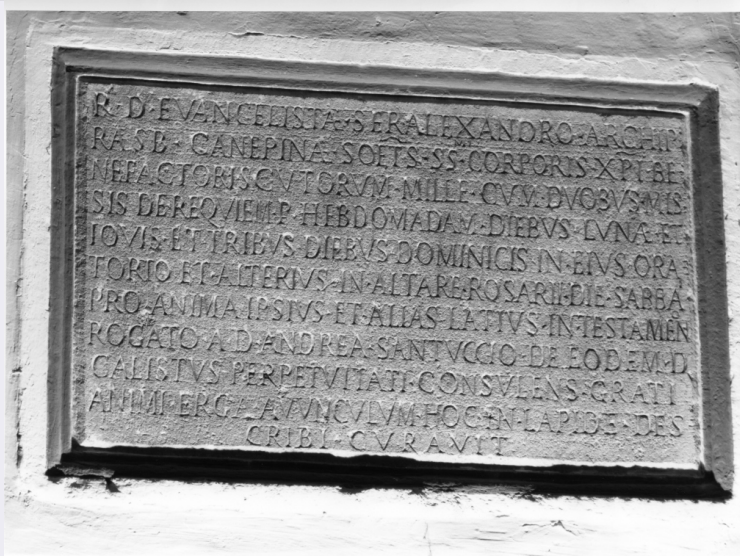 R · D · EVANGELISTA · SERALEXANDRO · ARCHIP
RASB · CANEPINA · SOETS · SS · CORPORIS · XPI · BE
NEFACTORI SCUTORUM · MILLE · CUM · DUOBUS · MIS
SIS DEREQUIEM · P · HEBDOMADAM · DIEBUS · LUNÆ · ET
IOVIS · ET · TRIBUS · DIEBUS · DOMINICIS IN · EIUS ORA
TORIO · ET · ALTERIUS · IN · ALTARE · ROSARII · DIE · SABBA
PRO · ANIMA · IPSIUS · ET · ALIAS · LATIUS · IN · TESTAMEN
ROGATO · A · D · ANDREA · SANTUCCIO · DE · EODEM · D
CALISTUS PERPETUITATI · CONSULENS · GRATI
ANIMI · ERGA · AVUNCULUM · HOC · IN · LAPIDE · DES
CRIBI · CURAVIT